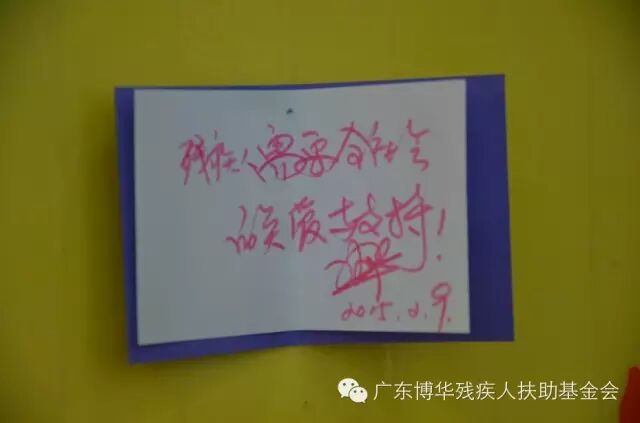 残疾人需要全社会
的关爱支持!
2015.2.9.
广东博华残疾人扶助基金会